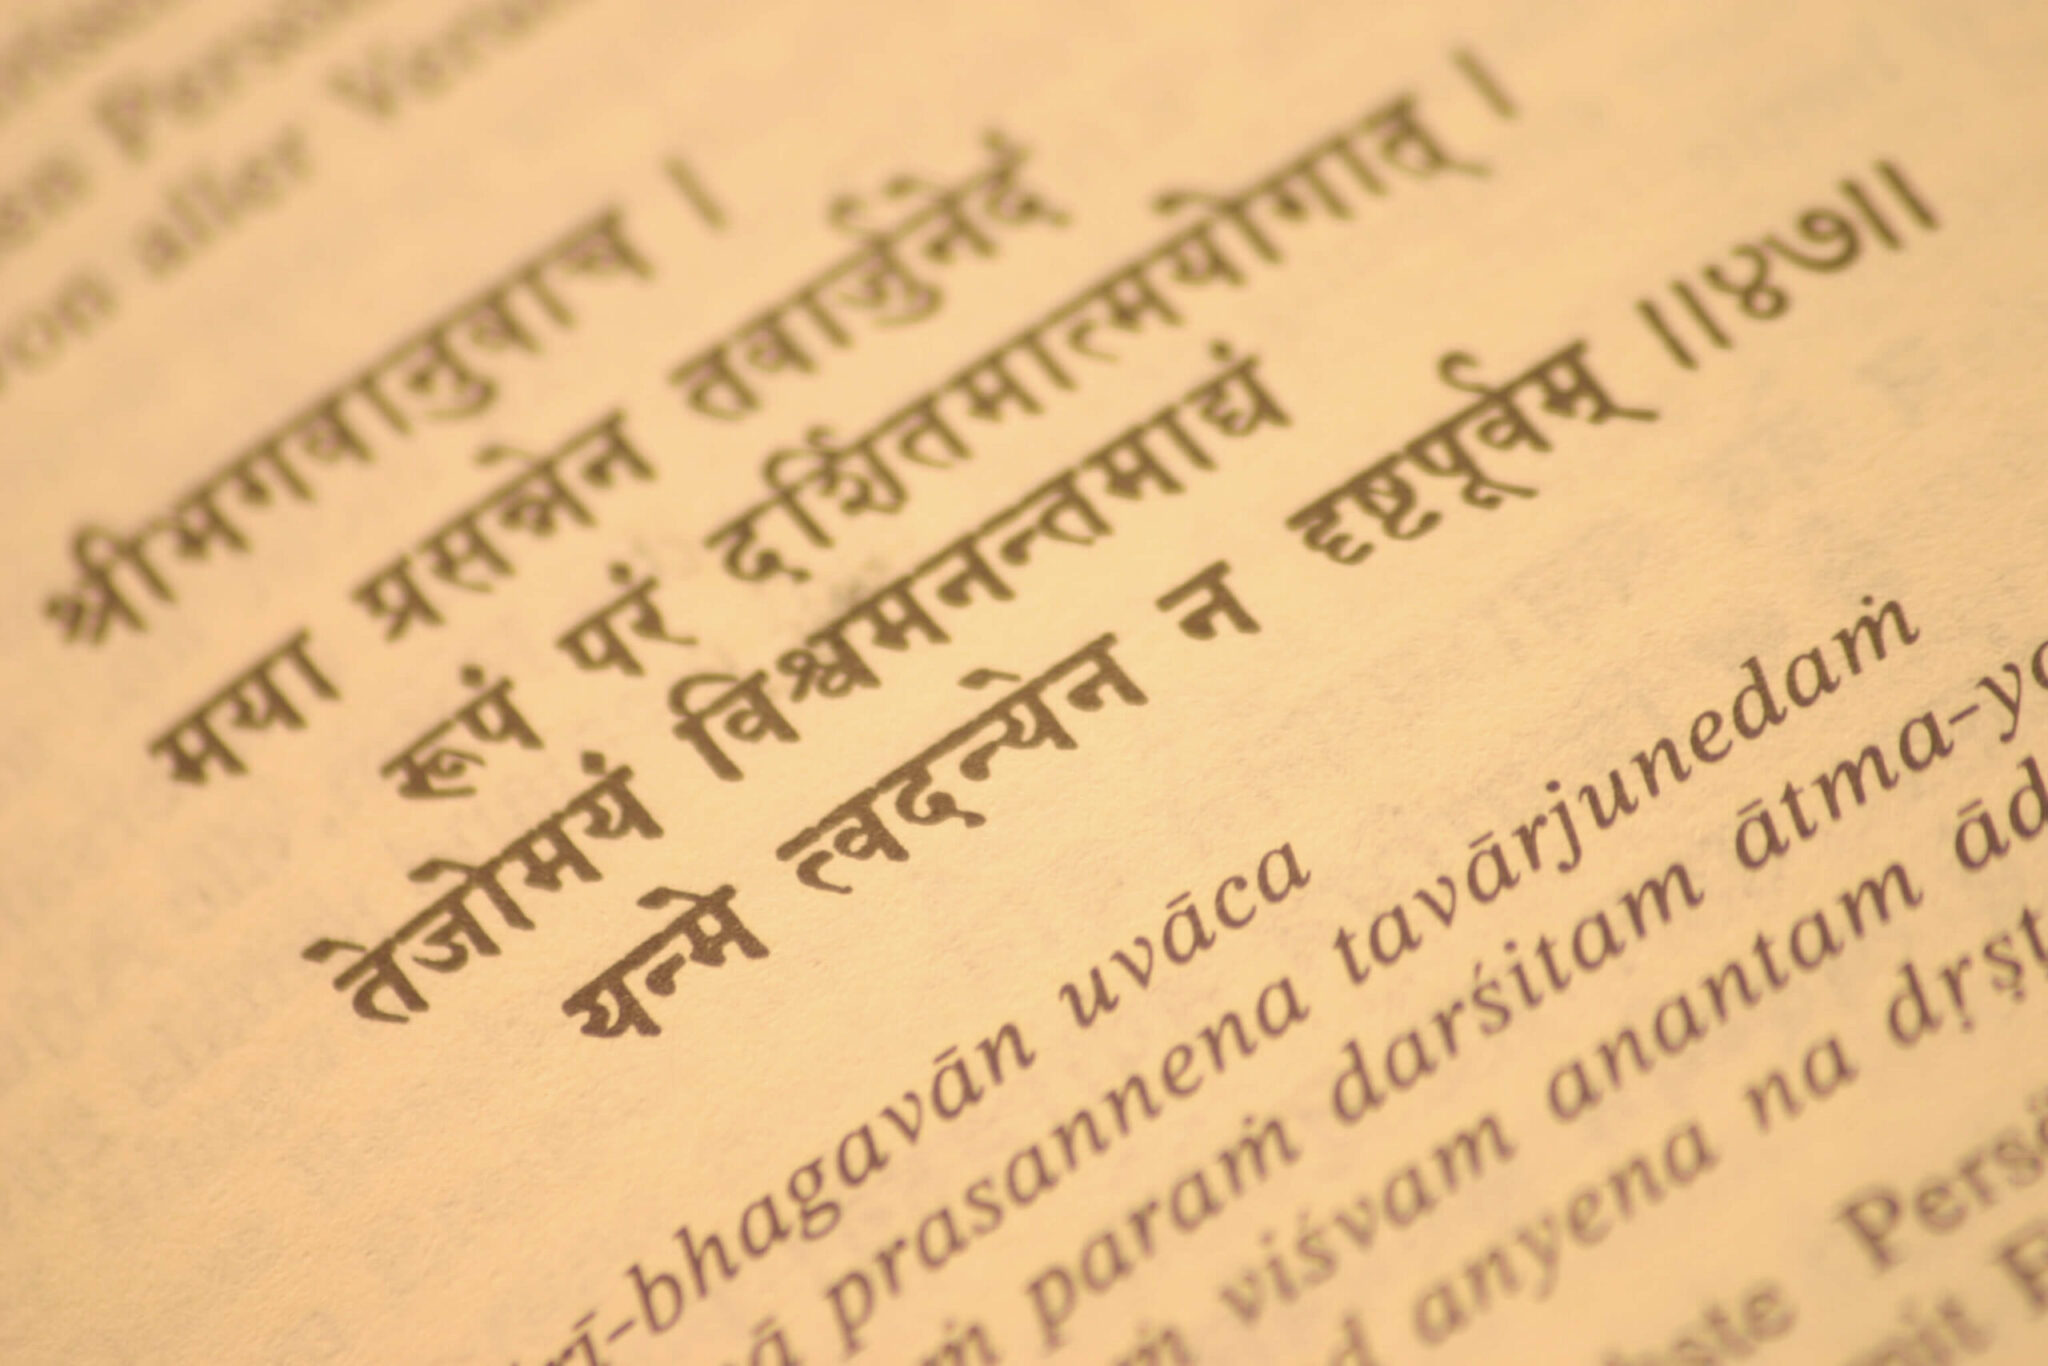 von aller
श्रीभगवानुवाच ।
मया प्रसन्नेन तवार्जुनेदं
रूपं परं दर्शितमात्मयोगात् ।
तेजोमयं विश्वमनन्तमाद्यं
यन्मे त्वदन्येन न दृष्टपूर्वम् ॥४७॥
rī-bhagavān uvāca
ā prasannena tavārjunedaṁ
ṁ paraṁ darśitam ātma-yo
ṁ viśvam anantam ād
d anyena na dṛṣṭ